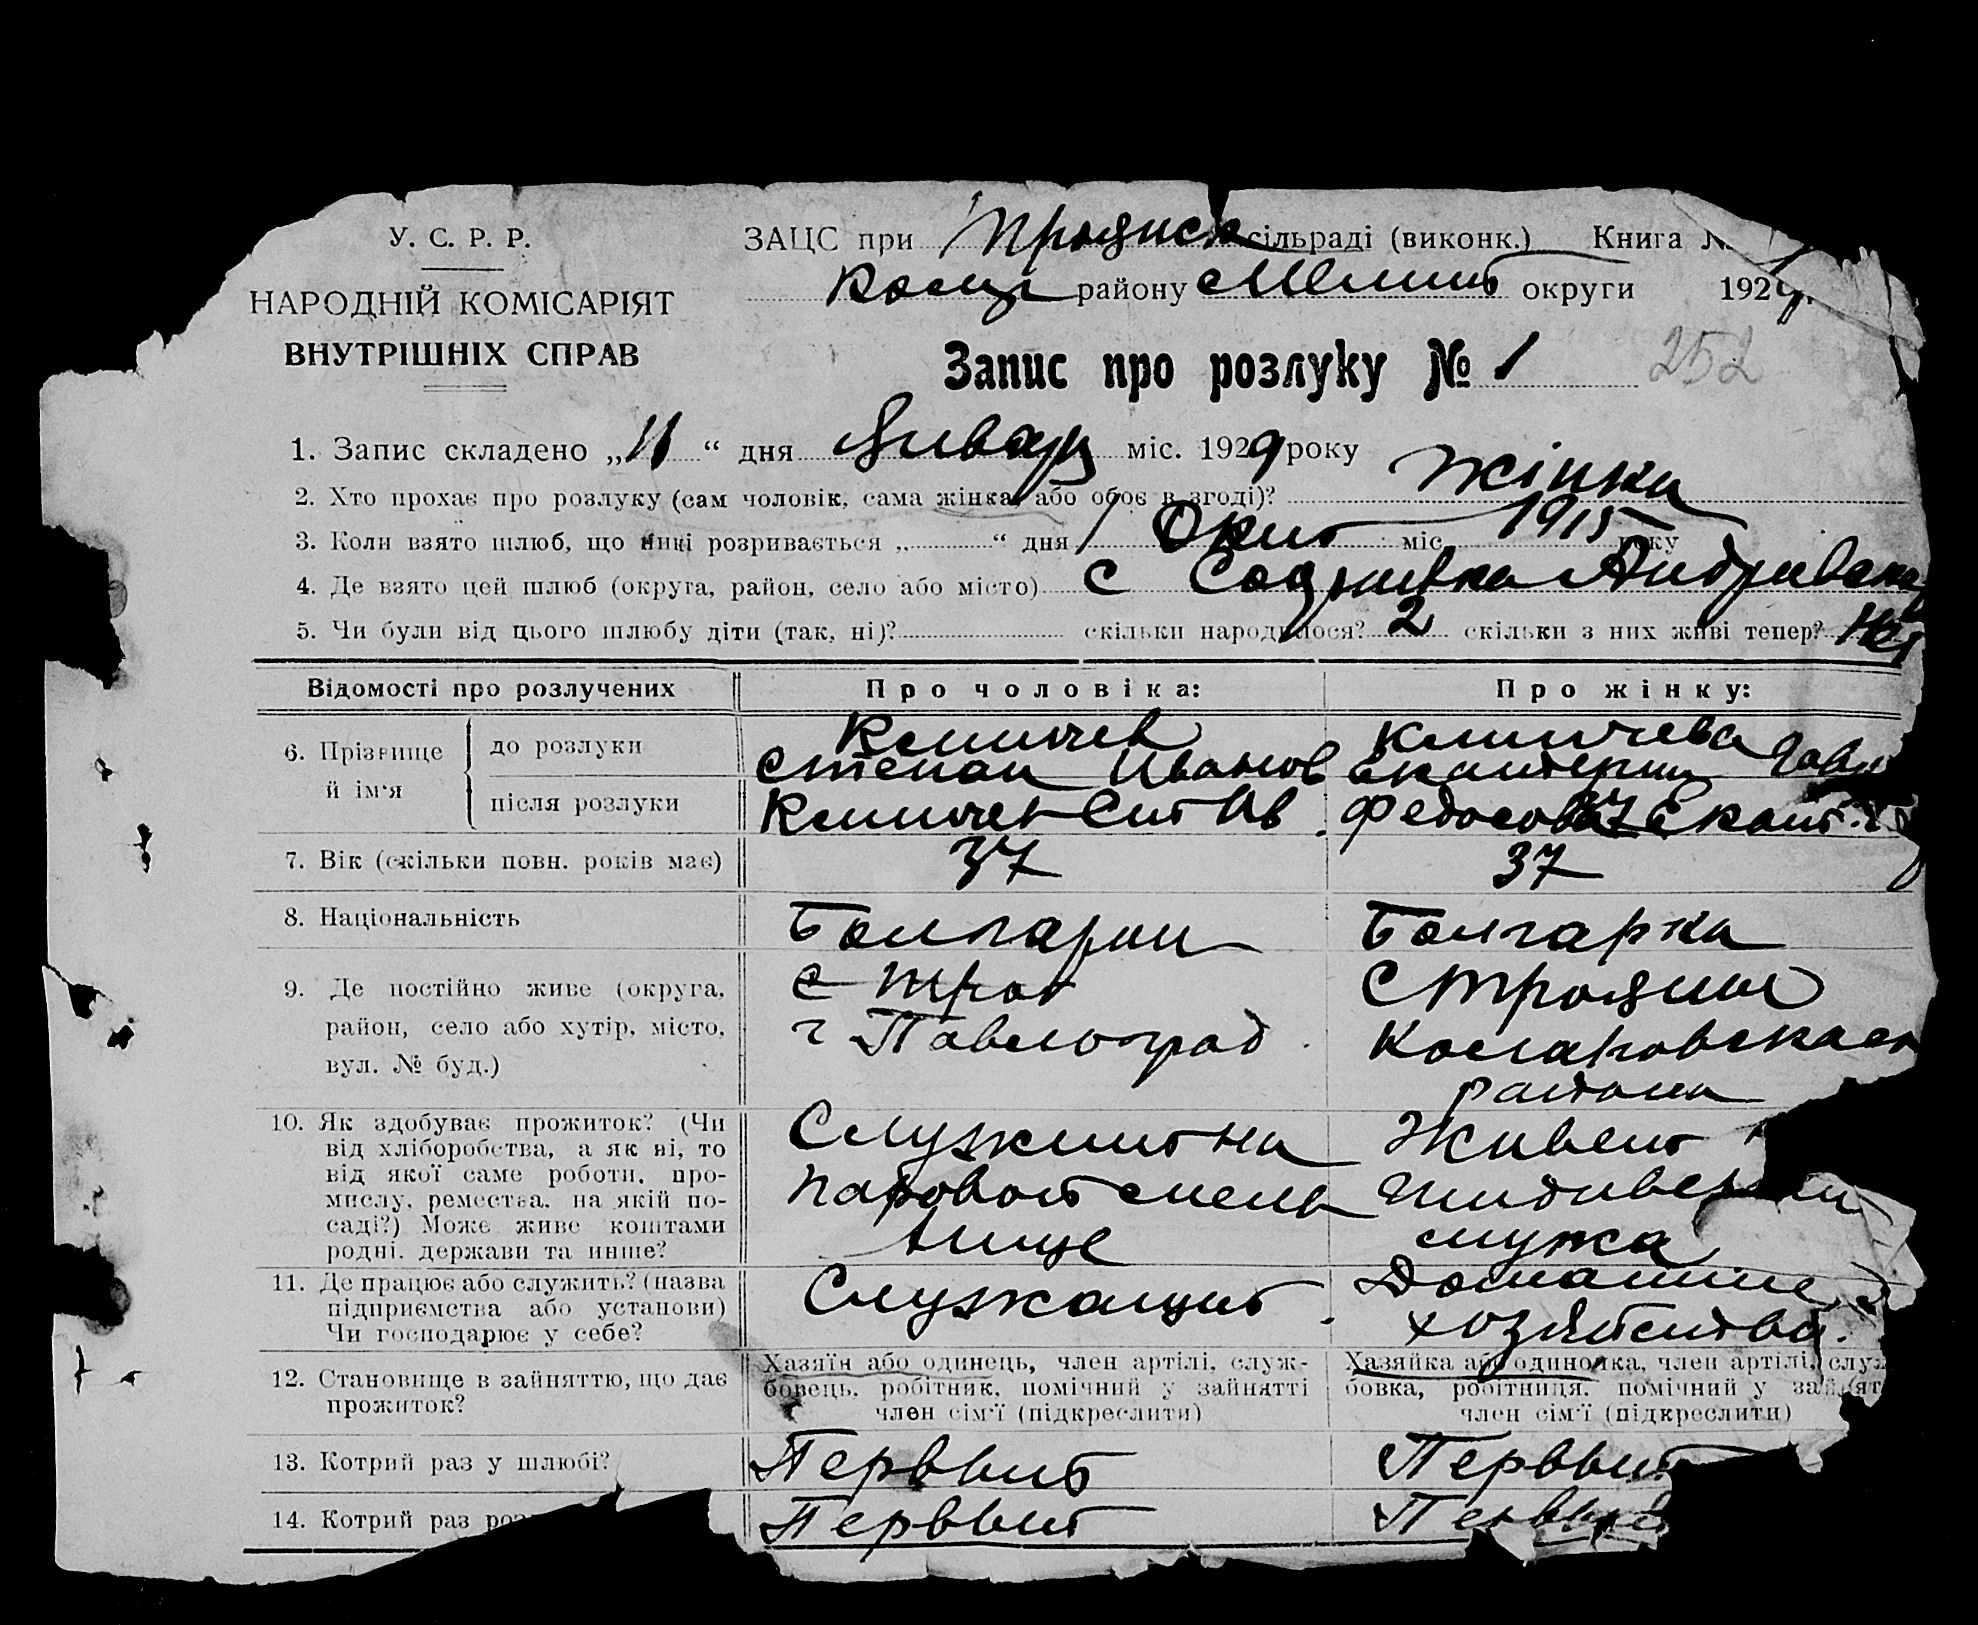 У. С. Р. Р.
НАРОДНІЙ КОМІСАРІЯТ
ВНУТРІШНІХ СПРАВ
ЗАЦС при Троянск сільраді (виконк.) Книга №
району Мелит округи 1929
Запис про розлуку № 1 252
1. Запис складено „11“ дня Января міс. 1929 року
2. Хто прохає про розлуку (сам чоловік, сама жінка, або обоє в згоді)? Жінка
3. Коли взято шлюб, що нині розривається „ “ дня 1 Окт міс. 1915 року
4. Де взято цей шлюб (округа, район, село або місто) с Андривка
5. Чи були від цього шлюбу діти (так, ні)? скільки народилося? 2 скільки з них живі тепер? Нет
Відомості про розлучених
Про чоловіка:
Про жінку:
6. Прізвище й ім'я
до розлуки
Степан Иванов
Екатерина
після розлуки
Федосова Екат.
7. Вік (скільки повн. років має)
37
37
8. Національність
Болгарин
Болгарка
9. Де постійно живе (округа,
район, село або хутір, місто,
вул. № буд.)
с Троя
г Павлоград
С Трояны
Коларовскаго
района
10. Як здобуває прожиток? (Чи
від хліборобства, а як ні, то
від якої саме роботи, про-
мислу, ремества, на якій по-
саді?) Може живе коштами
родні, держави та инше?
Служит на
паровой мель
нице
Живет
мужа
11. Де працює або служить? (назва
підприємства або установи)
Чи господарює у себе?
Служащий
Домашнее
хозяйство.
12. Становище в зайняттю, що дає
прожиток?
Хазяїн або одинець, член артілі, служ-
бовець, робітник, помічний у зайнятті
член сім'ї (підкреслити)
Хазяйка або одиночка, член артілі, служ
бовка, робітниця, помічний у зайнят
член сім'ї (підкреслити)
13. Котрий раз у шлюбі?
Первый
Первый
14. Котрий раз роз
Первый
Первый